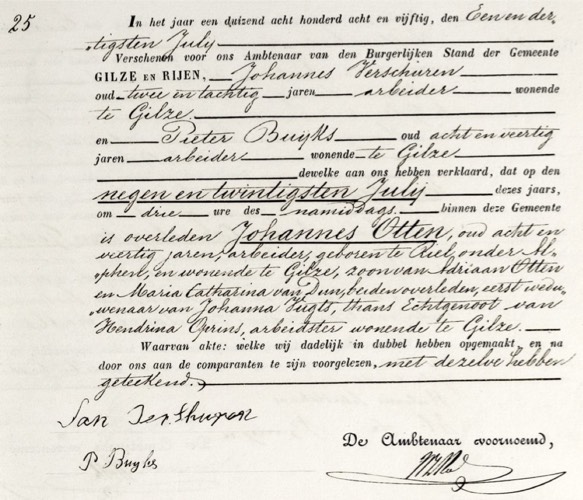 25
In het jaar een duizend acht honderd acht en vijftig, den Een en der-
tigsten July
Verschenen voor ons Ambtenaar van den Burgerlijken Stand der Gemeente
GILZE EN RIJEN, Johannes Verschuren
oud twee en tachtig jaren arbeider wonende
te Gilze
en Pieter Buyks oud acht en veertig
jaren arbeider wonende te Gilze
dewelke aan ons hebben verklaard, dat op den
negen en twintigsten July dezes jaars,
om drie ure des namiddags binnen deze Gemeente
is overleden Johannes Otten, oud acht en
veertig jaren, arbeider, geboren te Riel onder Al-
phen, en wonende te Gilze, zoon van Adriaan Otten
en Maria Catharina van Dun, beiden overleden, eerst wedu-
wenaar van Johanna Vugts, thans Echtgenoot van
Hendrina Oprins, arbeidster wonende te Gilze.
Waarvan akte: welke wij dadelijk in dubbel hebben opgemaakt, en na
door ons aan de comparanten te zijn voorgelezen, met dezelve hebben
geteekend.
Jan
P Buyks
De Ambtenaar voornoemd,